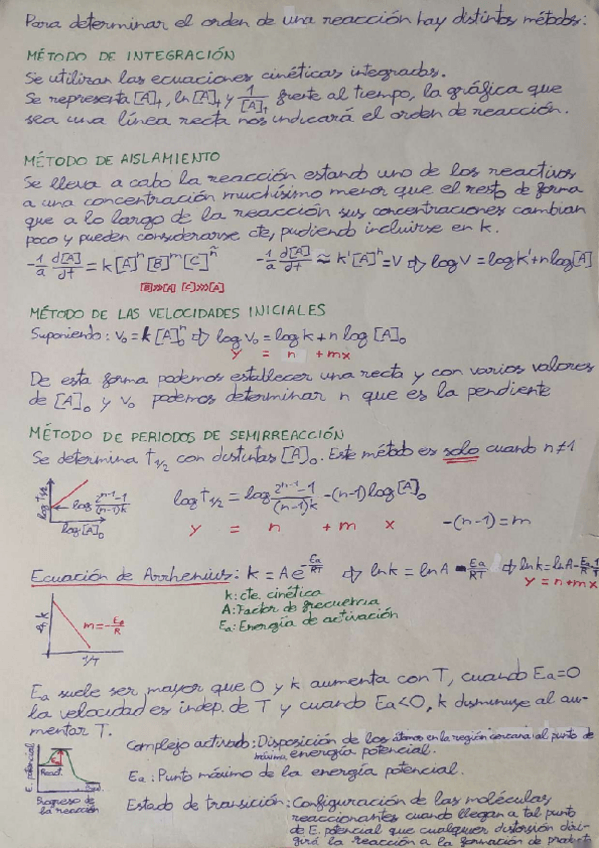 Para determinar el orden de una reacción hay distintos métodos:
MÉTODO DE INTEGRACIÓN
Se utilizan las ecuaciones cinéticas integradas.
Se representa [A]t, ln[A]t y 1/[A]t frente al tiempo, la gráfica que
sea una línea recta nos indicará el orden de reacción.
MÉTODO DE AISLAMIENTO
Se lleva a cabo la reacción estando uno de los reactivos
a una concentración muchísimo menor que el resto de forma
que a lo largo de la reacción sus concentraciones cambian
poco y pueden considerarse cte, pudiendo incluirse en k.
-1/a d[A]/dt = k[A]^n[B]^m[C]^ñ   -1/a d[A]/dt ≈ k'[A]^n = V ⇨ log V = log k' + n log[A]
[B]>>[A] [C]>>>[A]
MÉTODO DE LAS VELOCIDADES INICIALES
Suponiendo: v₀ = k[A]₀^n ⇨ log v₀ = log k + n log [A]₀
y = n + mx
De esta forma podemos establecer una recta y con varios valores
de [A]₀ y v₀ podemos determinar n que es la pendiente
MÉTODO DE PERIODOS DE SEMIRREACCIÓN
Se determina t1/2 con distintas [A]₀. Este método es solo cuando n≠1
log t1/2
log (2^(n-1) -1)/((n-1)k)
log[A]₀
log t1/2 = log (2^(n-1) -1)/((n-1)k) -(n-1)log[A]₀
y = n + m x   -(n-1) = m
Ecuación de Arrhenius: k = A e^(-Ea/RT) ⇨ ln k = ln A - Ea/RT ⇨ ln k = ln A - Ea/R · 1/T
y = n + mx
k: cte. cinética
A: Factor de frecuencia
Ea: Energía de activación
m = -Ea/R
1/T
Ea suele ser mayor que 0 y k aumenta con T, cuando Ea=0
la velocidad es indep. de T y cuando Ea<0, k disminuye al au-
mentar T.
E. potencial
React.
Progreso de
la reacción
Complejo activado: Disposición de los átomos en la región cercana al punto de
máxima energía potencial.
Ea: Punto máximo de la energía potencial.
Estado de transición: Configuración de las moléculas
reaccionantes cuando llegan a tal punto
de E. potencial que cualquier distorsión diri-
girá la reacción a la formación de